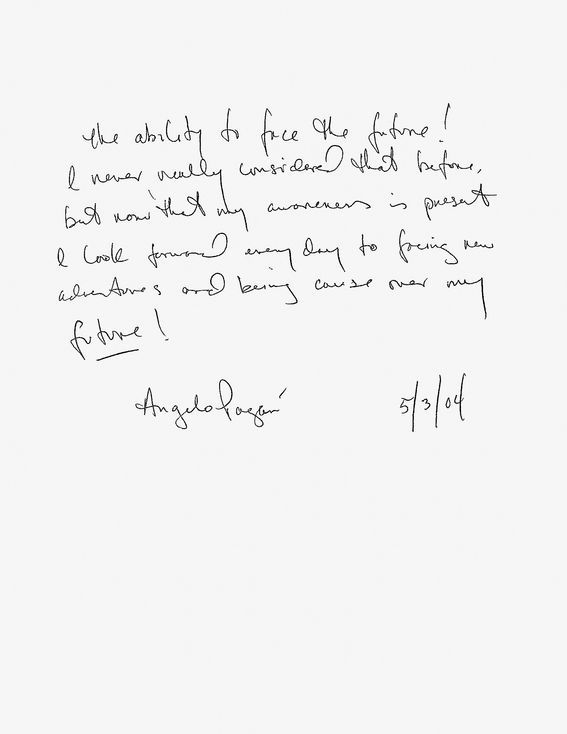 the ability to face the future!
I never really considered that before,
but now that my awareness is present
I look forward every day to facing new
adventures and being cause over my
future!
Angelo Pagán 5/3/04